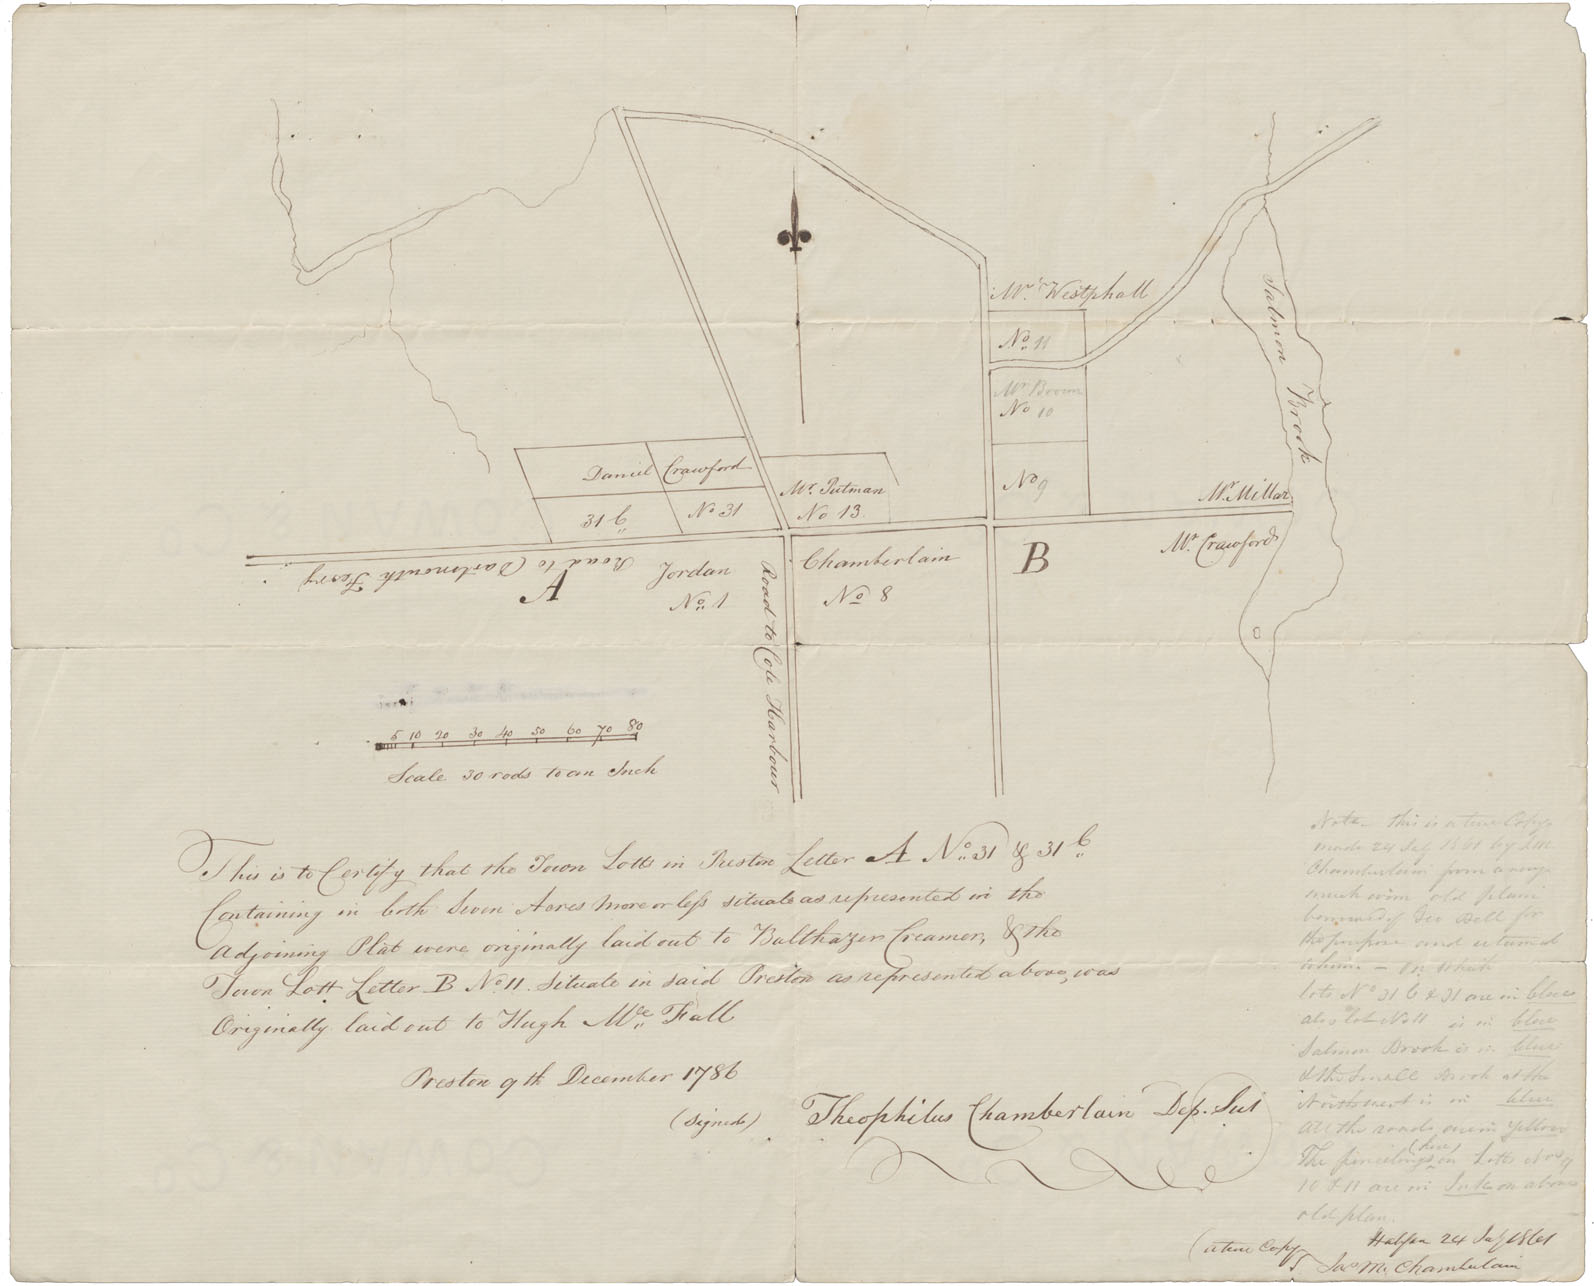 Mr. Westphall
No. 11
Mr Brown
No 10
No 9
Salmon Brook
Mr. Millar
Mr. Crawford
Daniel Crawford
31 b
No 31
Mr. Putman
No 13
Road to Dartmouth Ferry
A
Jordan
No. 1
Chamberlain
No 8
B
Road to Cole Harbour
5 10 20 30 40 50 60 70 80
Scale 30 rods to an Inch
This is to Certify that the Town Lotts in Preston Letter A No. 31 & 31 b
Containing in both Seven Acres more or less situate as represented in the
adjoining Plat were originally laid out to Balthazer Creamer, & the
Town Lott Letter B No. 11. Situate in said Preston as represented above, was
Originally laid out to Hugh Mc. Fall
Preston 9th December 1786
(Signed) Theophilus Chamberlain Dep. Sur
Note – this is a true Copy
made 24 July 1861 by
Chamberlain from a very
much worn old plan
borrowed of Geo Bell for
the purpose and returned
to him – In which
lots No 31 b & 31 are in blue
also lot No 11 is in blue
Salmon Brook is in blue
& the Small Brook at the
Northwest is in blue
all the roads are in yellow
The pencilings (here) on Lotts Nos 9
10 & 11 are in Ink on above
old plan.
Halifax 24 July 1861
(a true Copy) Jas Mc. Chamberlain